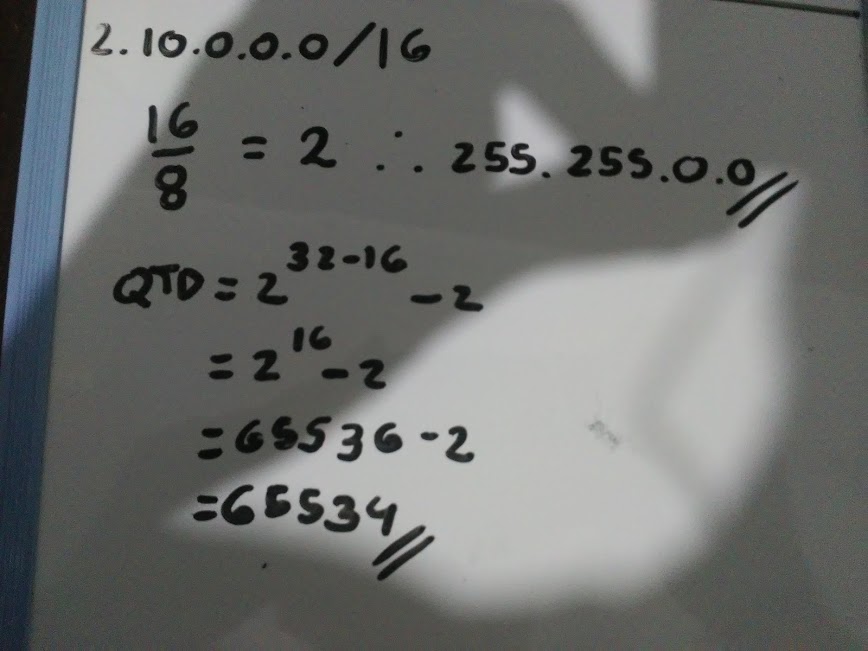 2. 10.0.0.0/16
16/8 = 2 ∴ 255.255.0.0//
QTD = 2^32-16 - 2
= 2^16 - 2
= 65536 - 2
= 65534//